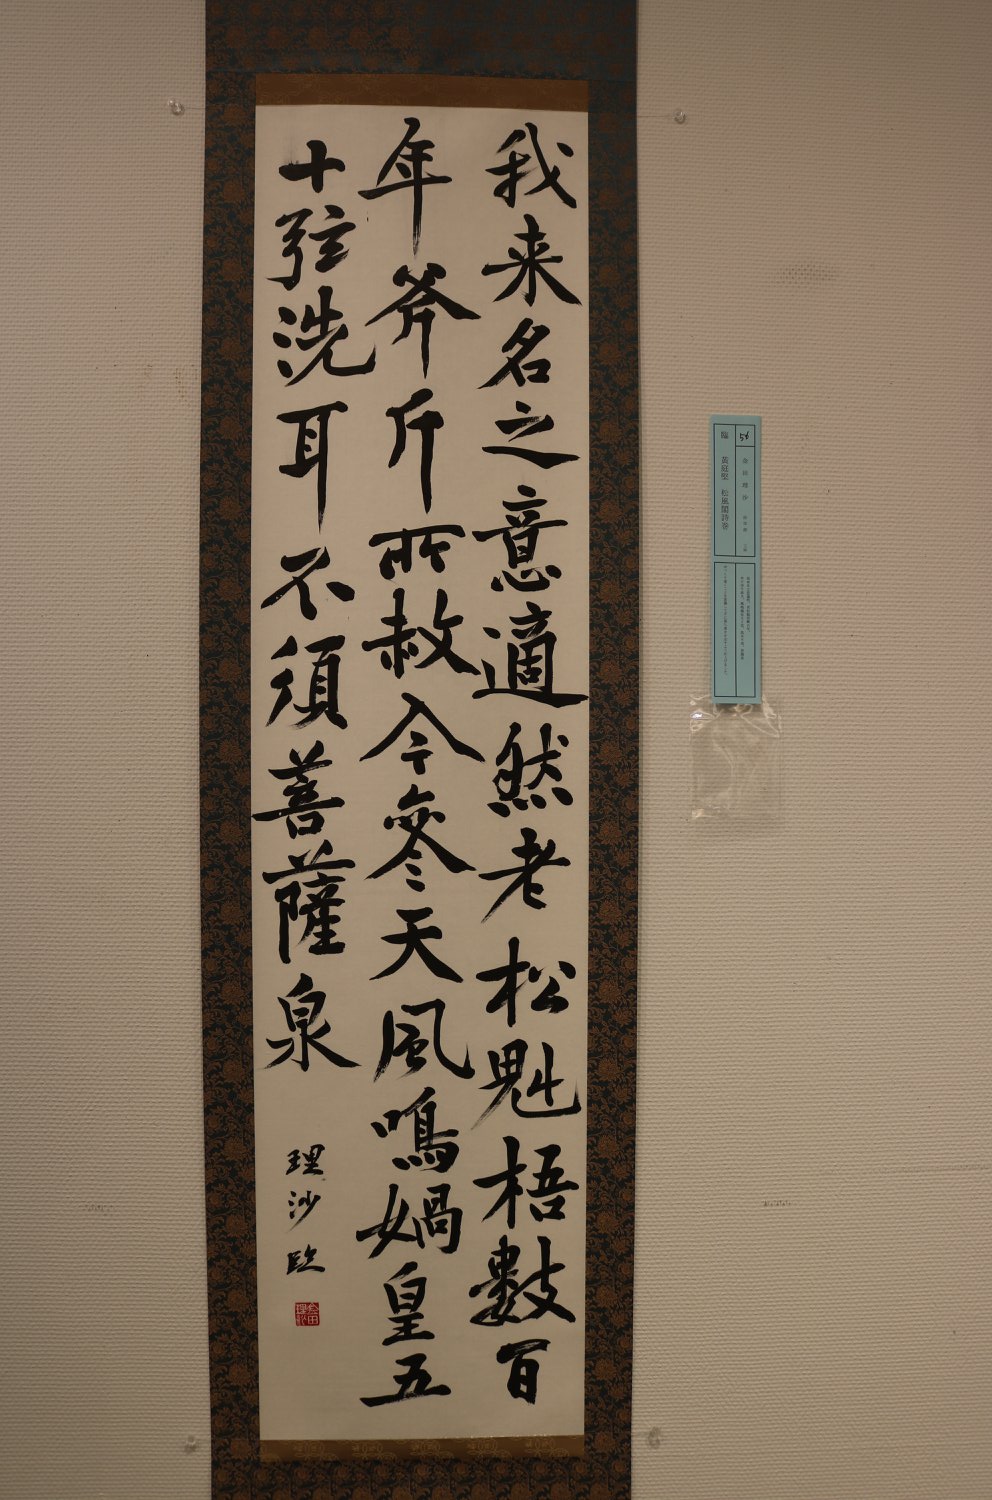 我来名之意適然老松魁梧數百
年斧斤所赦今參天風鳴媧皇五
十弦洗耳不須菩薩泉
理沙臨
56
臨 黄庭堅 松風閣詩巻